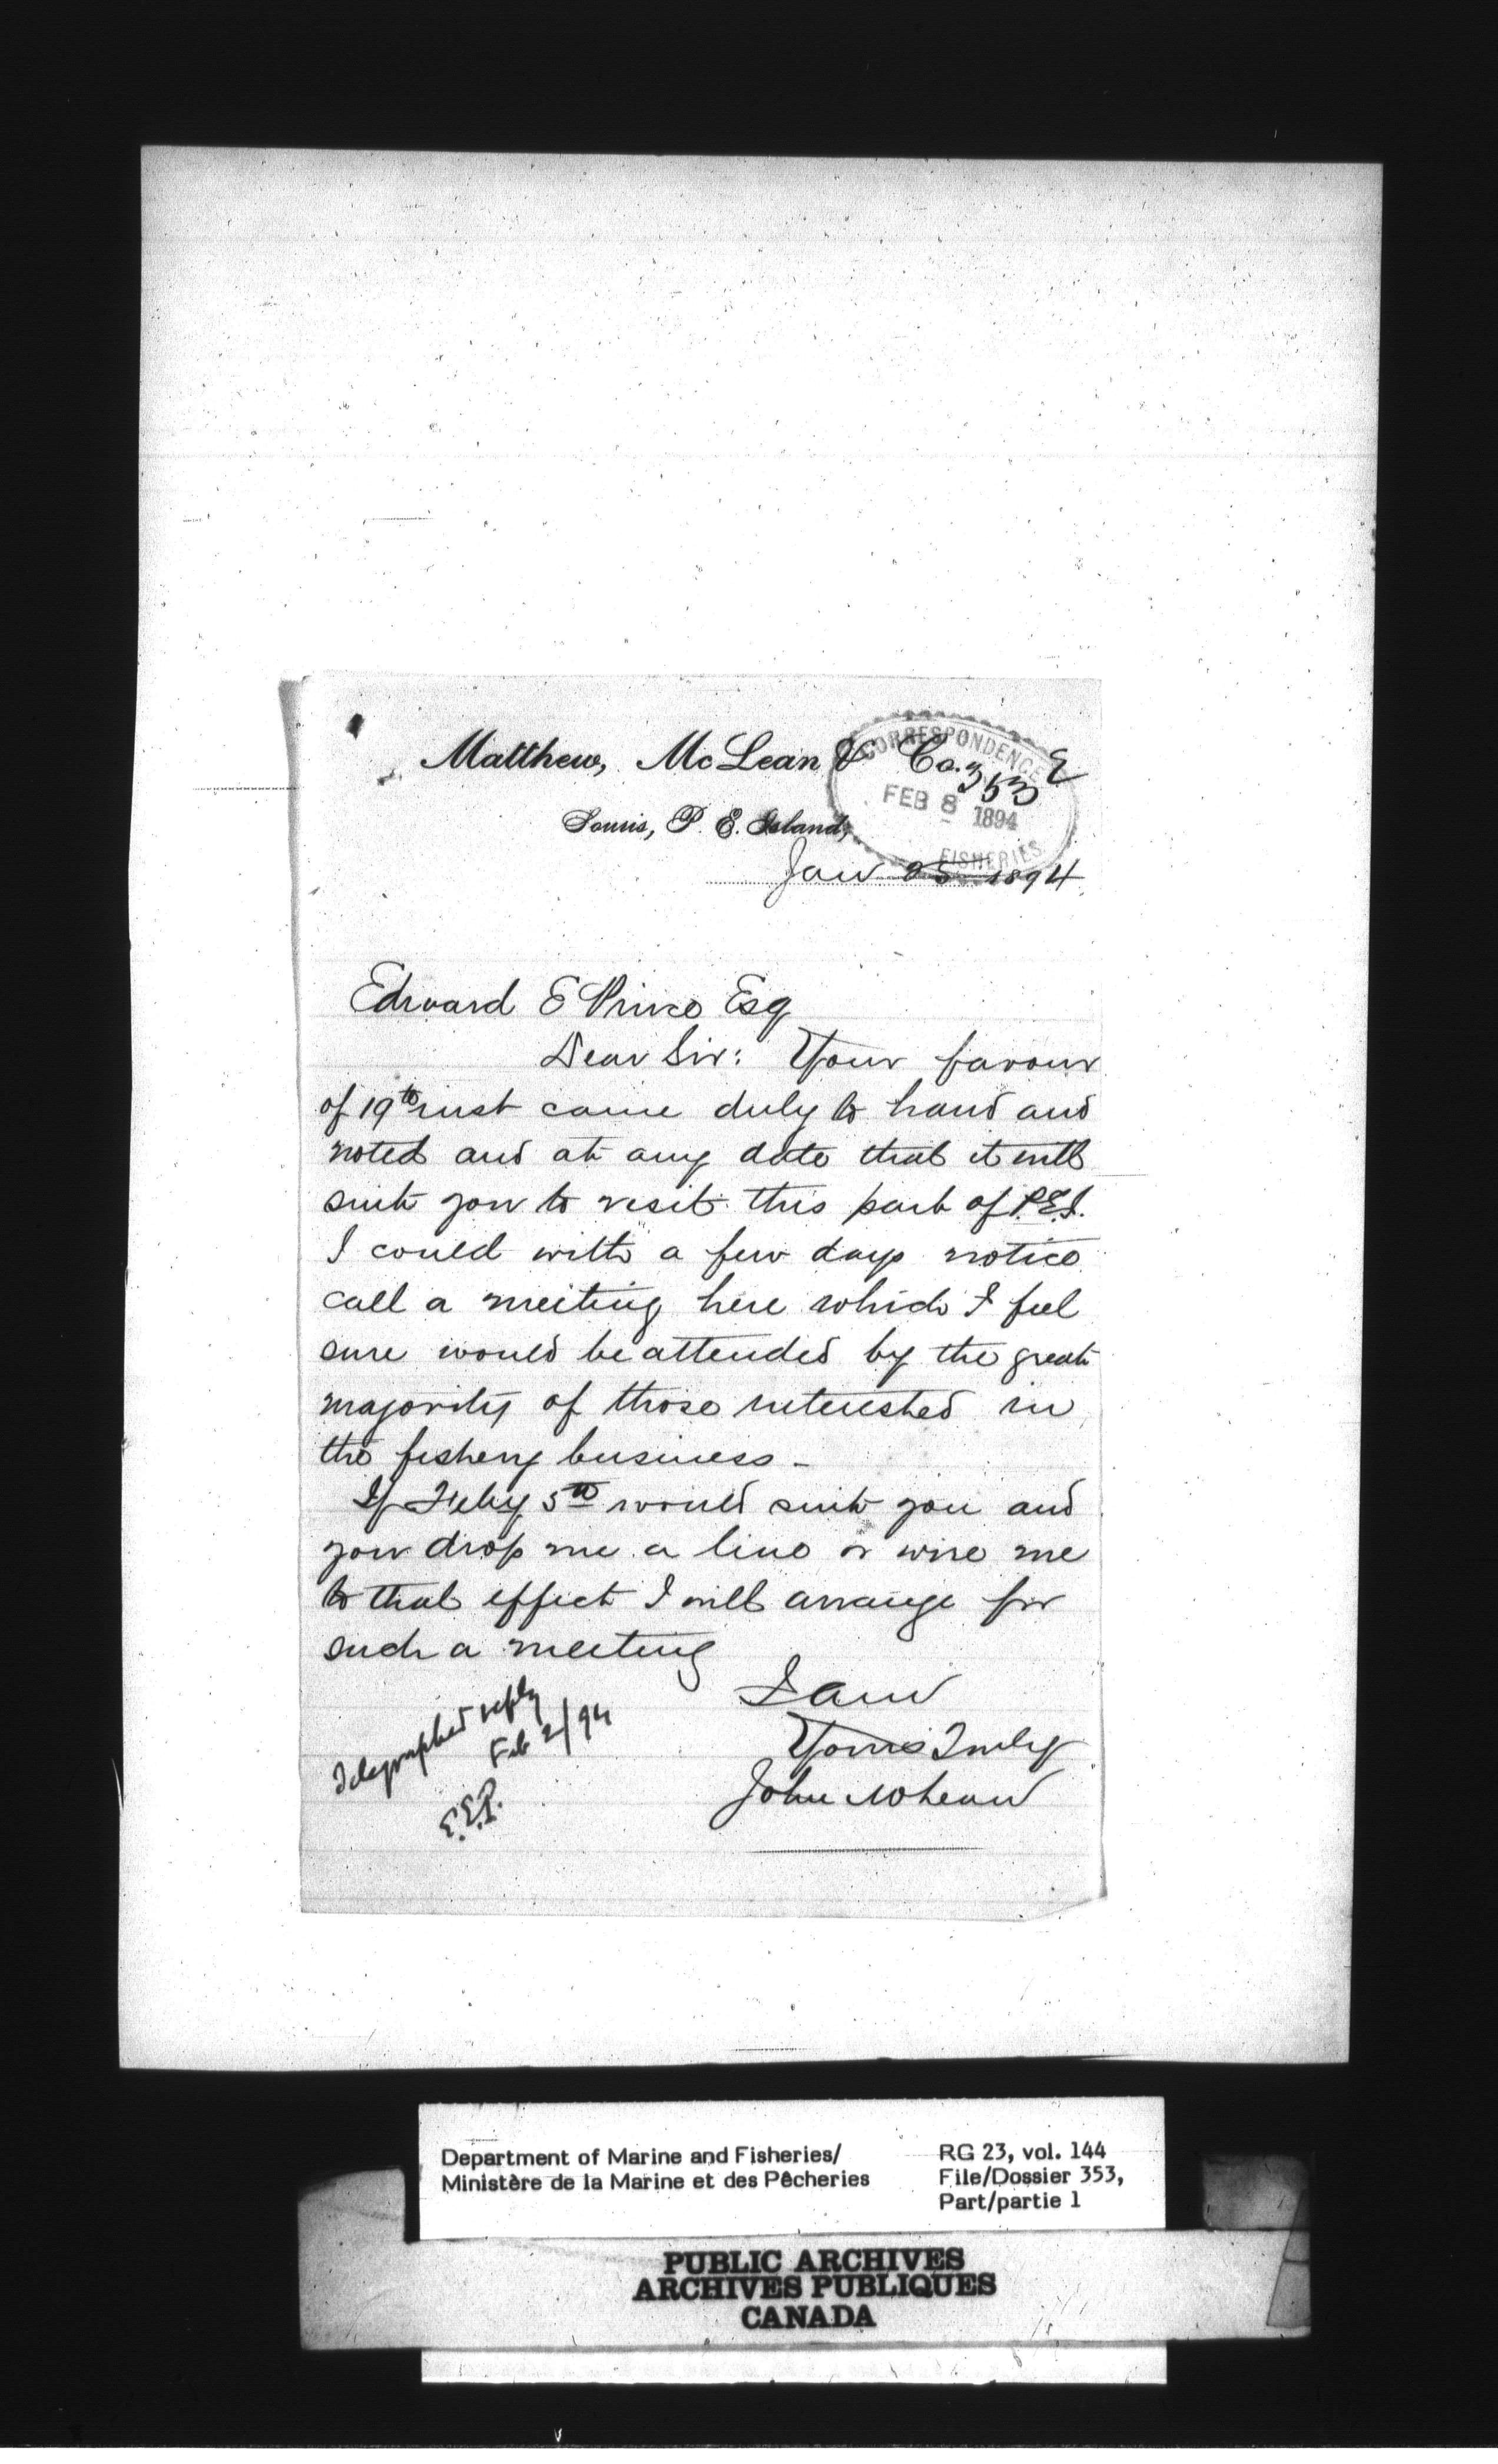 Matthew, McLean & Co.
353 E
CORRESPONDENCE
FEB 8 1894
FISHERIES
Souris, P. E. Island,
Jan 25 1894
Edward E Prince Esq
Dear Sir: Your favour
of 19th inst came duly to hand and
noted and at any date that it will
suit you to visit this part of P.E.I.
I could with a few days notice
call a meeting here which I feel
sure would be attended by the great
majority of those interested in
the fishery business -
If Feby 5th would suit you and
you drop me a line or wire me
to that effect I will arrange for
such a meeting
I am
Yours Truly
John McLean
Telegraphed reply
Feb 2/94
E.E.P.
Department of Marine and Fisheries/
Ministère de la Marine et des Pêcheries
RG 23, vol. 144
File/Dossier 353,
Part/partie 1
PUBLIC ARCHIVES
ARCHIVES PUBLIQUES
CANADA